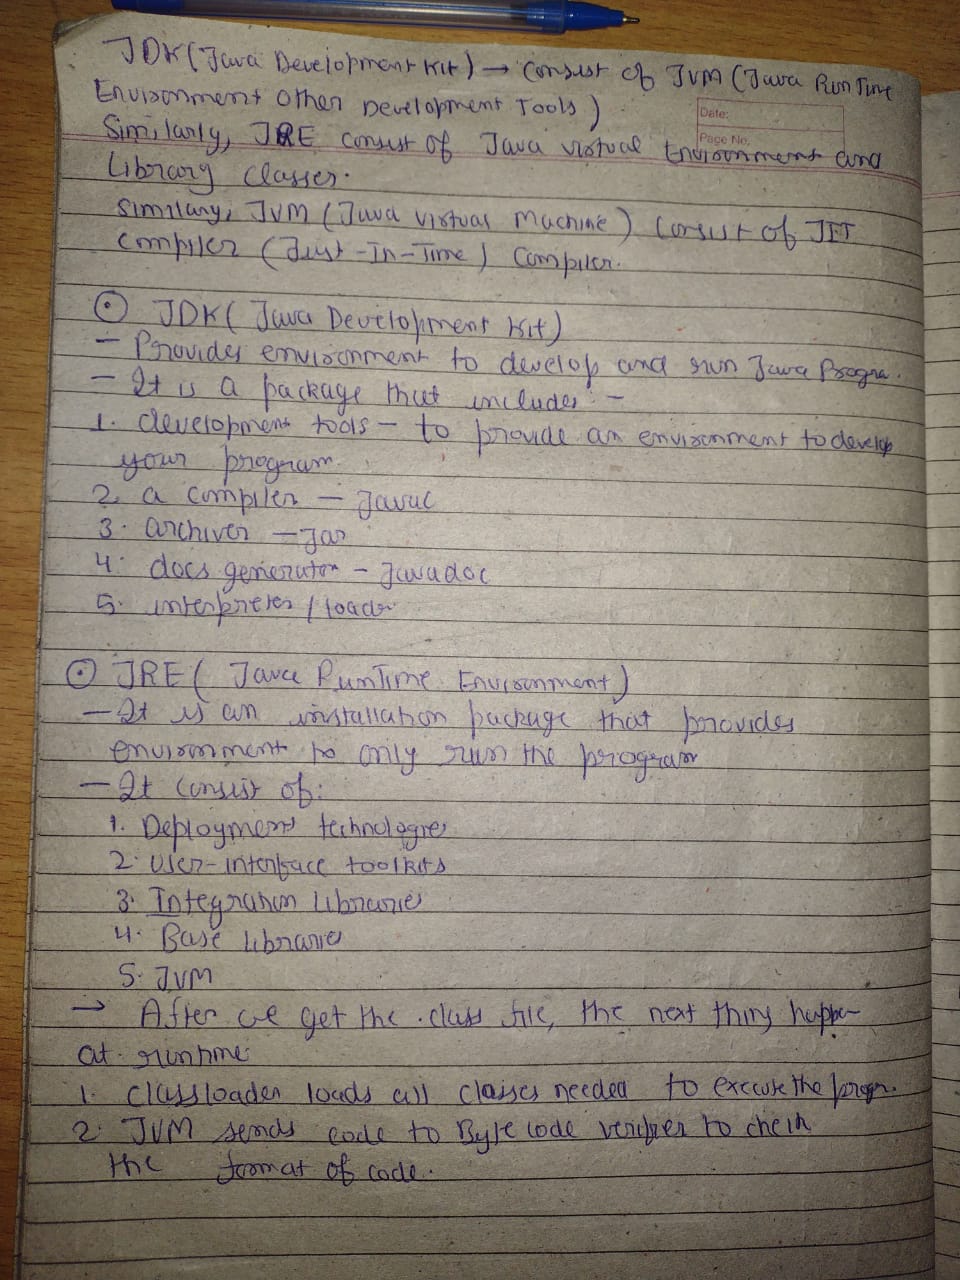 JDK (Java Development Kit) → Consist of JVM (Java RunTime
Environment Other Development Tools)
Date:
Page No.
Similarly, JRE consist of Java virtual Environment and
Library classes.
Similary, JVM (Java Virtual Machine) consist of JIT
compiler (Just-In-Time) Compiler.
⊙ JDK (Java Development Kit)
- Provides environment to develop and run Java Progra.
- It is a package that includes :-
1. development tools - to provide an environment to develop
your program.
2. a compiler - Javac
3. archiver - Jar
4. docs generator - Javadoc
5. interpreter / loader
⊙ JRE (Java RunTime Environment)
- It is an installation package that provides
environment to only run the program
- It consist of:
1. Deployment technologies
2. User-interface toolkits
3. Integration libraries
4. Base libraries
5. JVM
→ After we get the .class file, the next thing happen
at runtime:
1. Classloader loads all classes needed to execute the progr.
2. JVM sends code to Byte code verifier to check
the format of code.